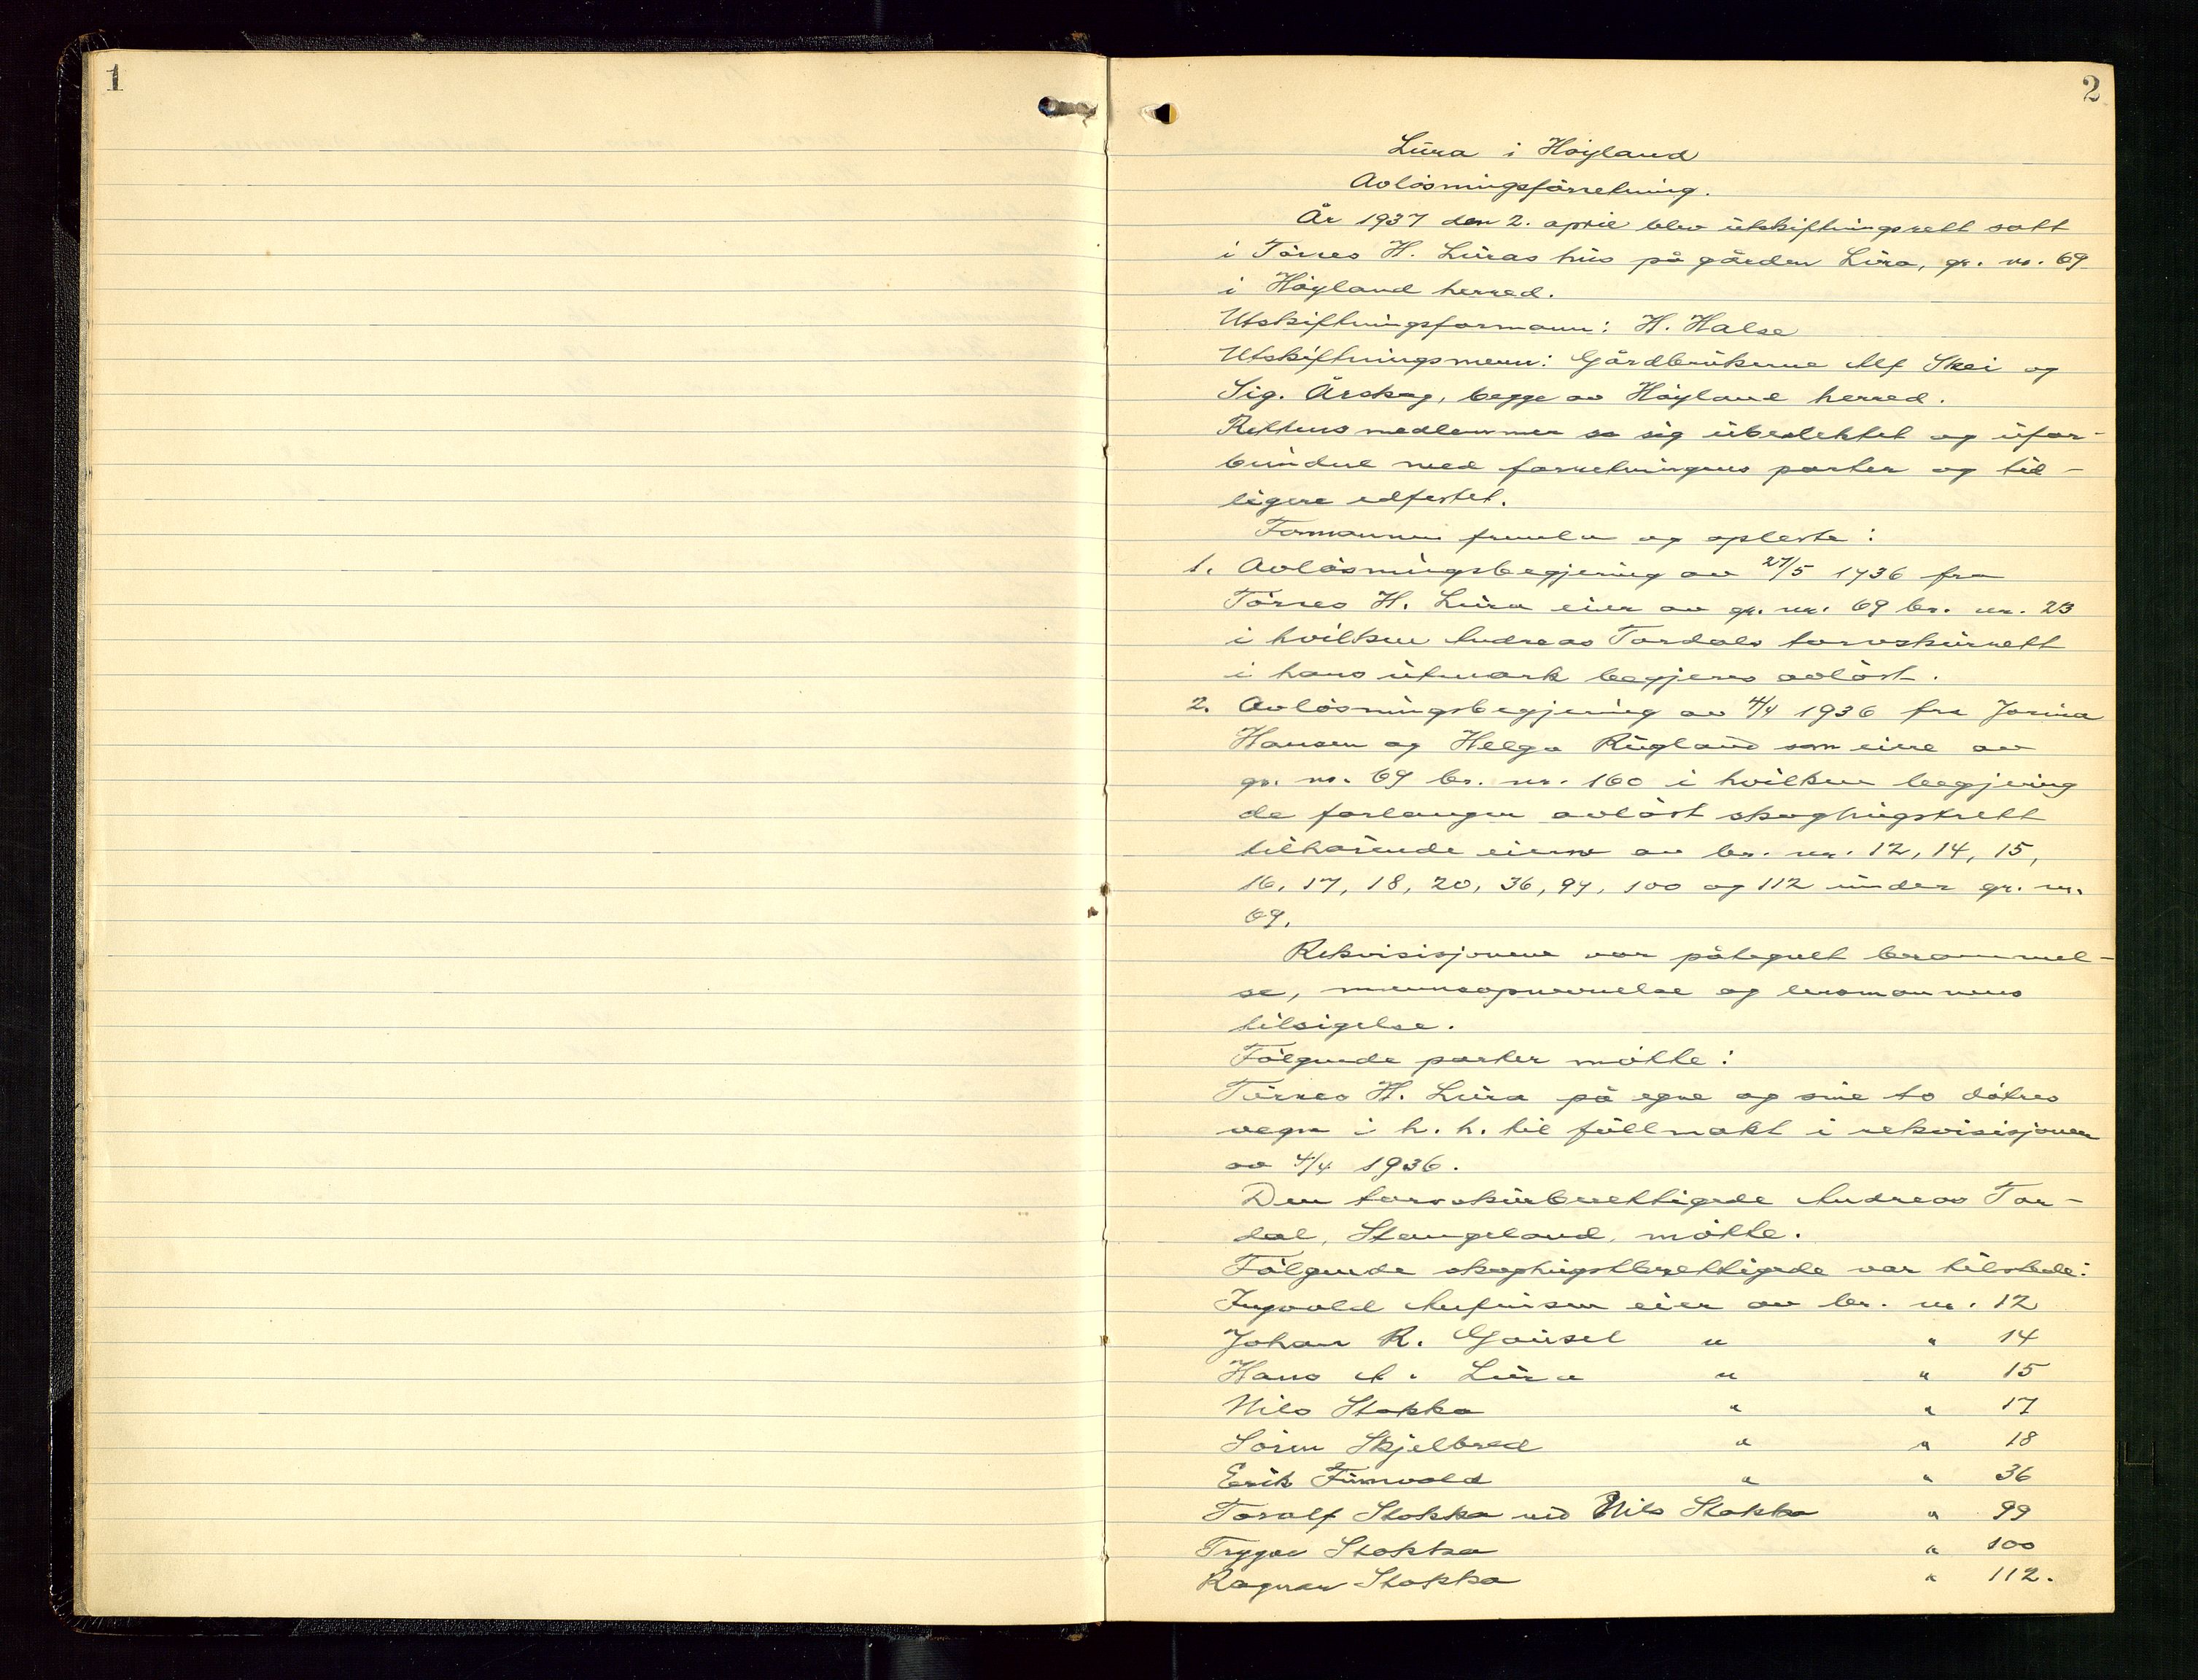 1
2
Lura i Høyland
Avløsningsforretning.
År 1937 den 2. april blev utskiftningsrett satt
i Tørres H. Luras hus på gården Lura, gr. nr. 69
i Høyland herred.
Utskiftningsformann: H. Halse
Utskiftningsmenn: Gårdbrukerne Alf Skei og
Sig. Årskog, begge av Høyland herred.
Rettens medlemmer sa sig ubeslektet og ufor-
bundne med forretningens parter og tid-
ligere edfestet.
Formannen fremla og opleste:
1. Avløsningsbegjering av 27/5 1936 fra
Tørres H. Lura eier av gr. nr. 69 br. nr. 23
i hvilken Andreas Tordals torvskurrett
i hans utmark begjeres avløst.
2. Avløsningsbegjering av 4/4 1936 fra Jorina
Hansen og Helga Rugland som eiere av
gr. nr. 69 br. nr. 160 i hvilken begjering
de forlanger avløst skoghugstrett
tilhørende eierne av br. nr. 12, 14, 15,
16, 17, 18, 20, 36, 99, 100 og 112 under gr. nr.
69.
Rekvisisjonene var påtegnet berammel-
se, mannsopnevnelse og lensmannens
tilsigelse.
Følgende parter møtte:
Tørres H. Lura på egne og sine to døtres
vegne i h. h. til fullmakt i rekvisisjonen
av 4/4 1936.
Den torvskurberettigede Andreas Tor-
dal, Stangeland, møtte.
Følgende skoghugstberettigede var tilstede:
Ingvald Aufinsen eier av br. nr. 12
Johan R. Gausel " " 14
Hans A. Lura " " 15
Nils Stokka " " 17
Søren Skjelbred " " 18
Erik Furuvald " " 36
Toralf Stokka ved Nils Stokka " 99
Trygve Stokka " 100
Ragnar Stokka " 112.